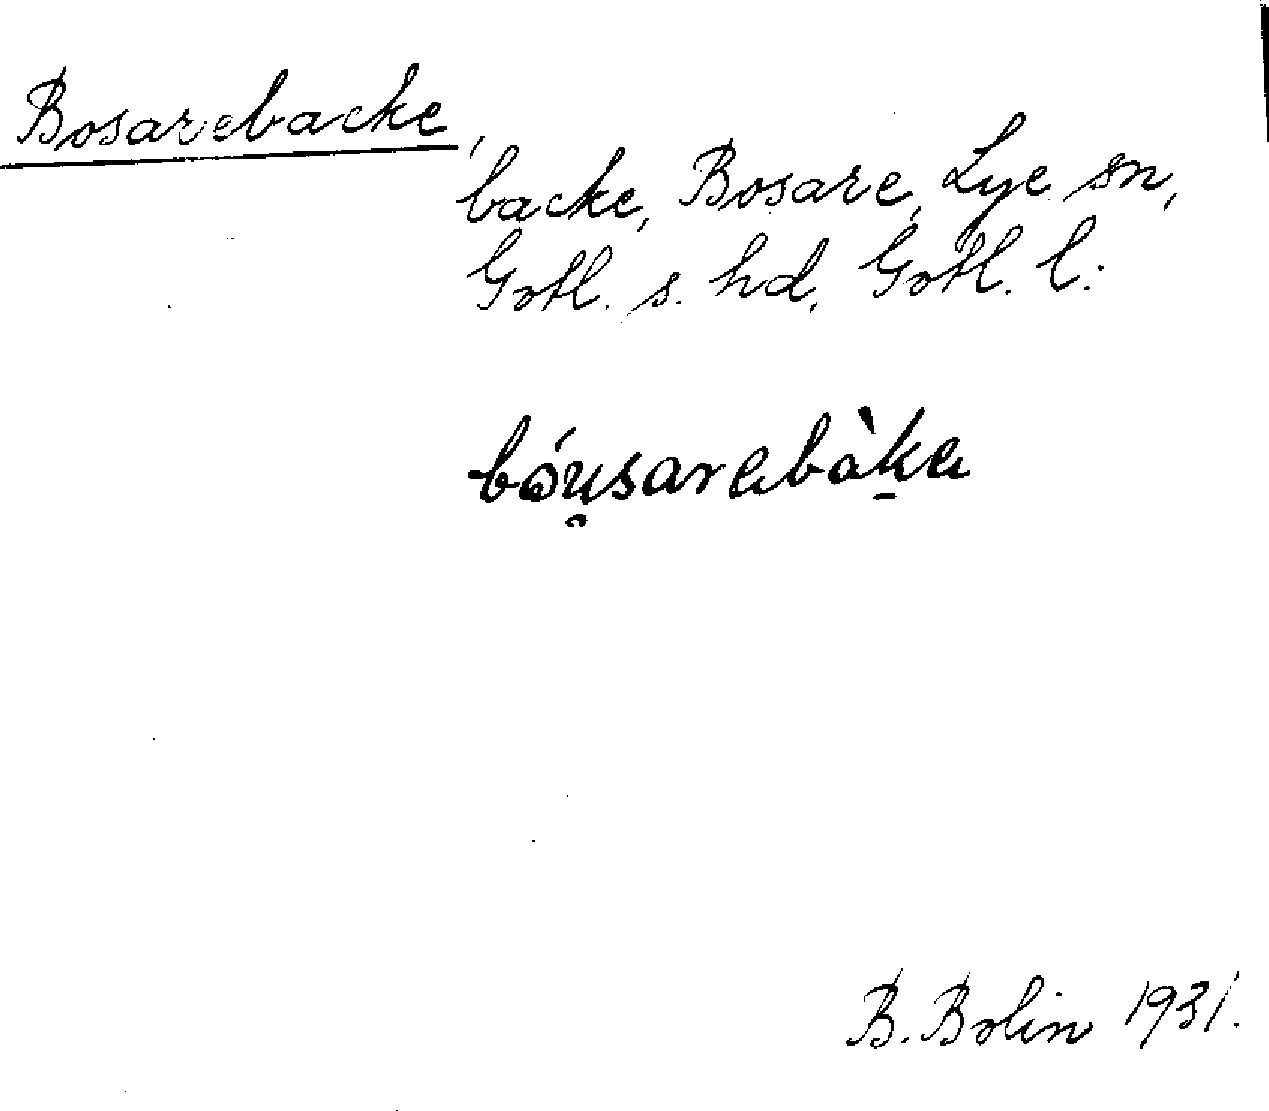 Bosarebacke,
backe, Bosare, Lye sn,
Gotl. s. hd, Gotl. l.
bóu̯sarebàka
B. Bolin 1931.